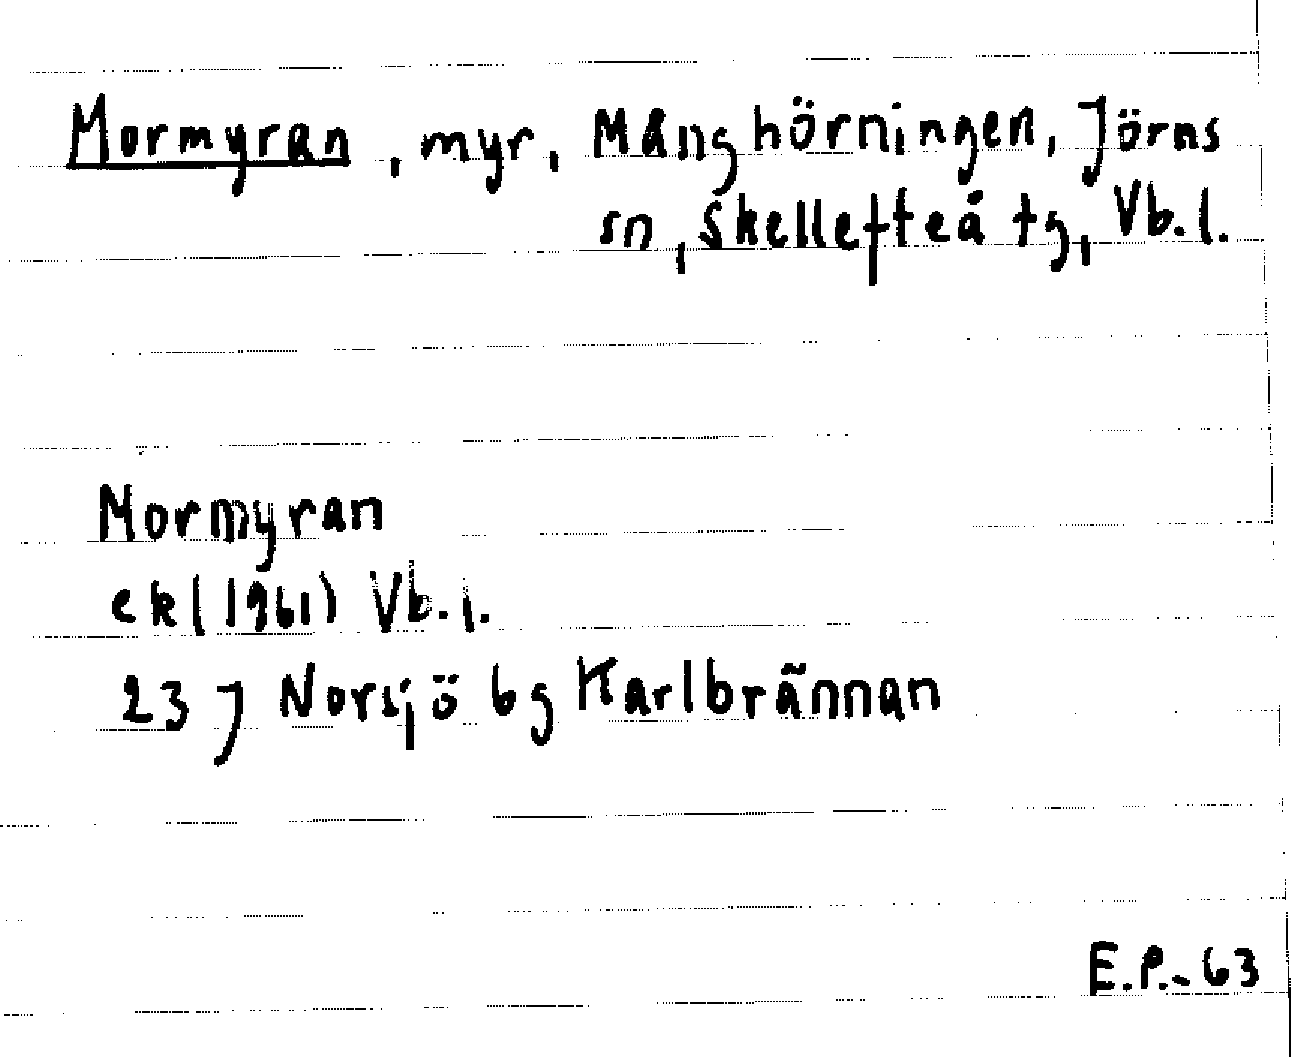 Mormyran, myr, Månghörningen, Jörns
sn, Skellefteå tg, Vb.l.
Mormyran
ek (1961) Vb.l.
23 J Norsjö bg Karlbrännan
E.P.-63